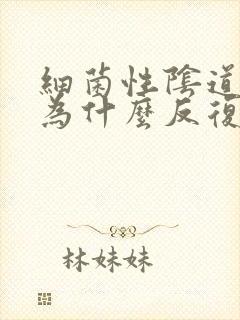 細菌性陰道
為什麼反復
林妹妹